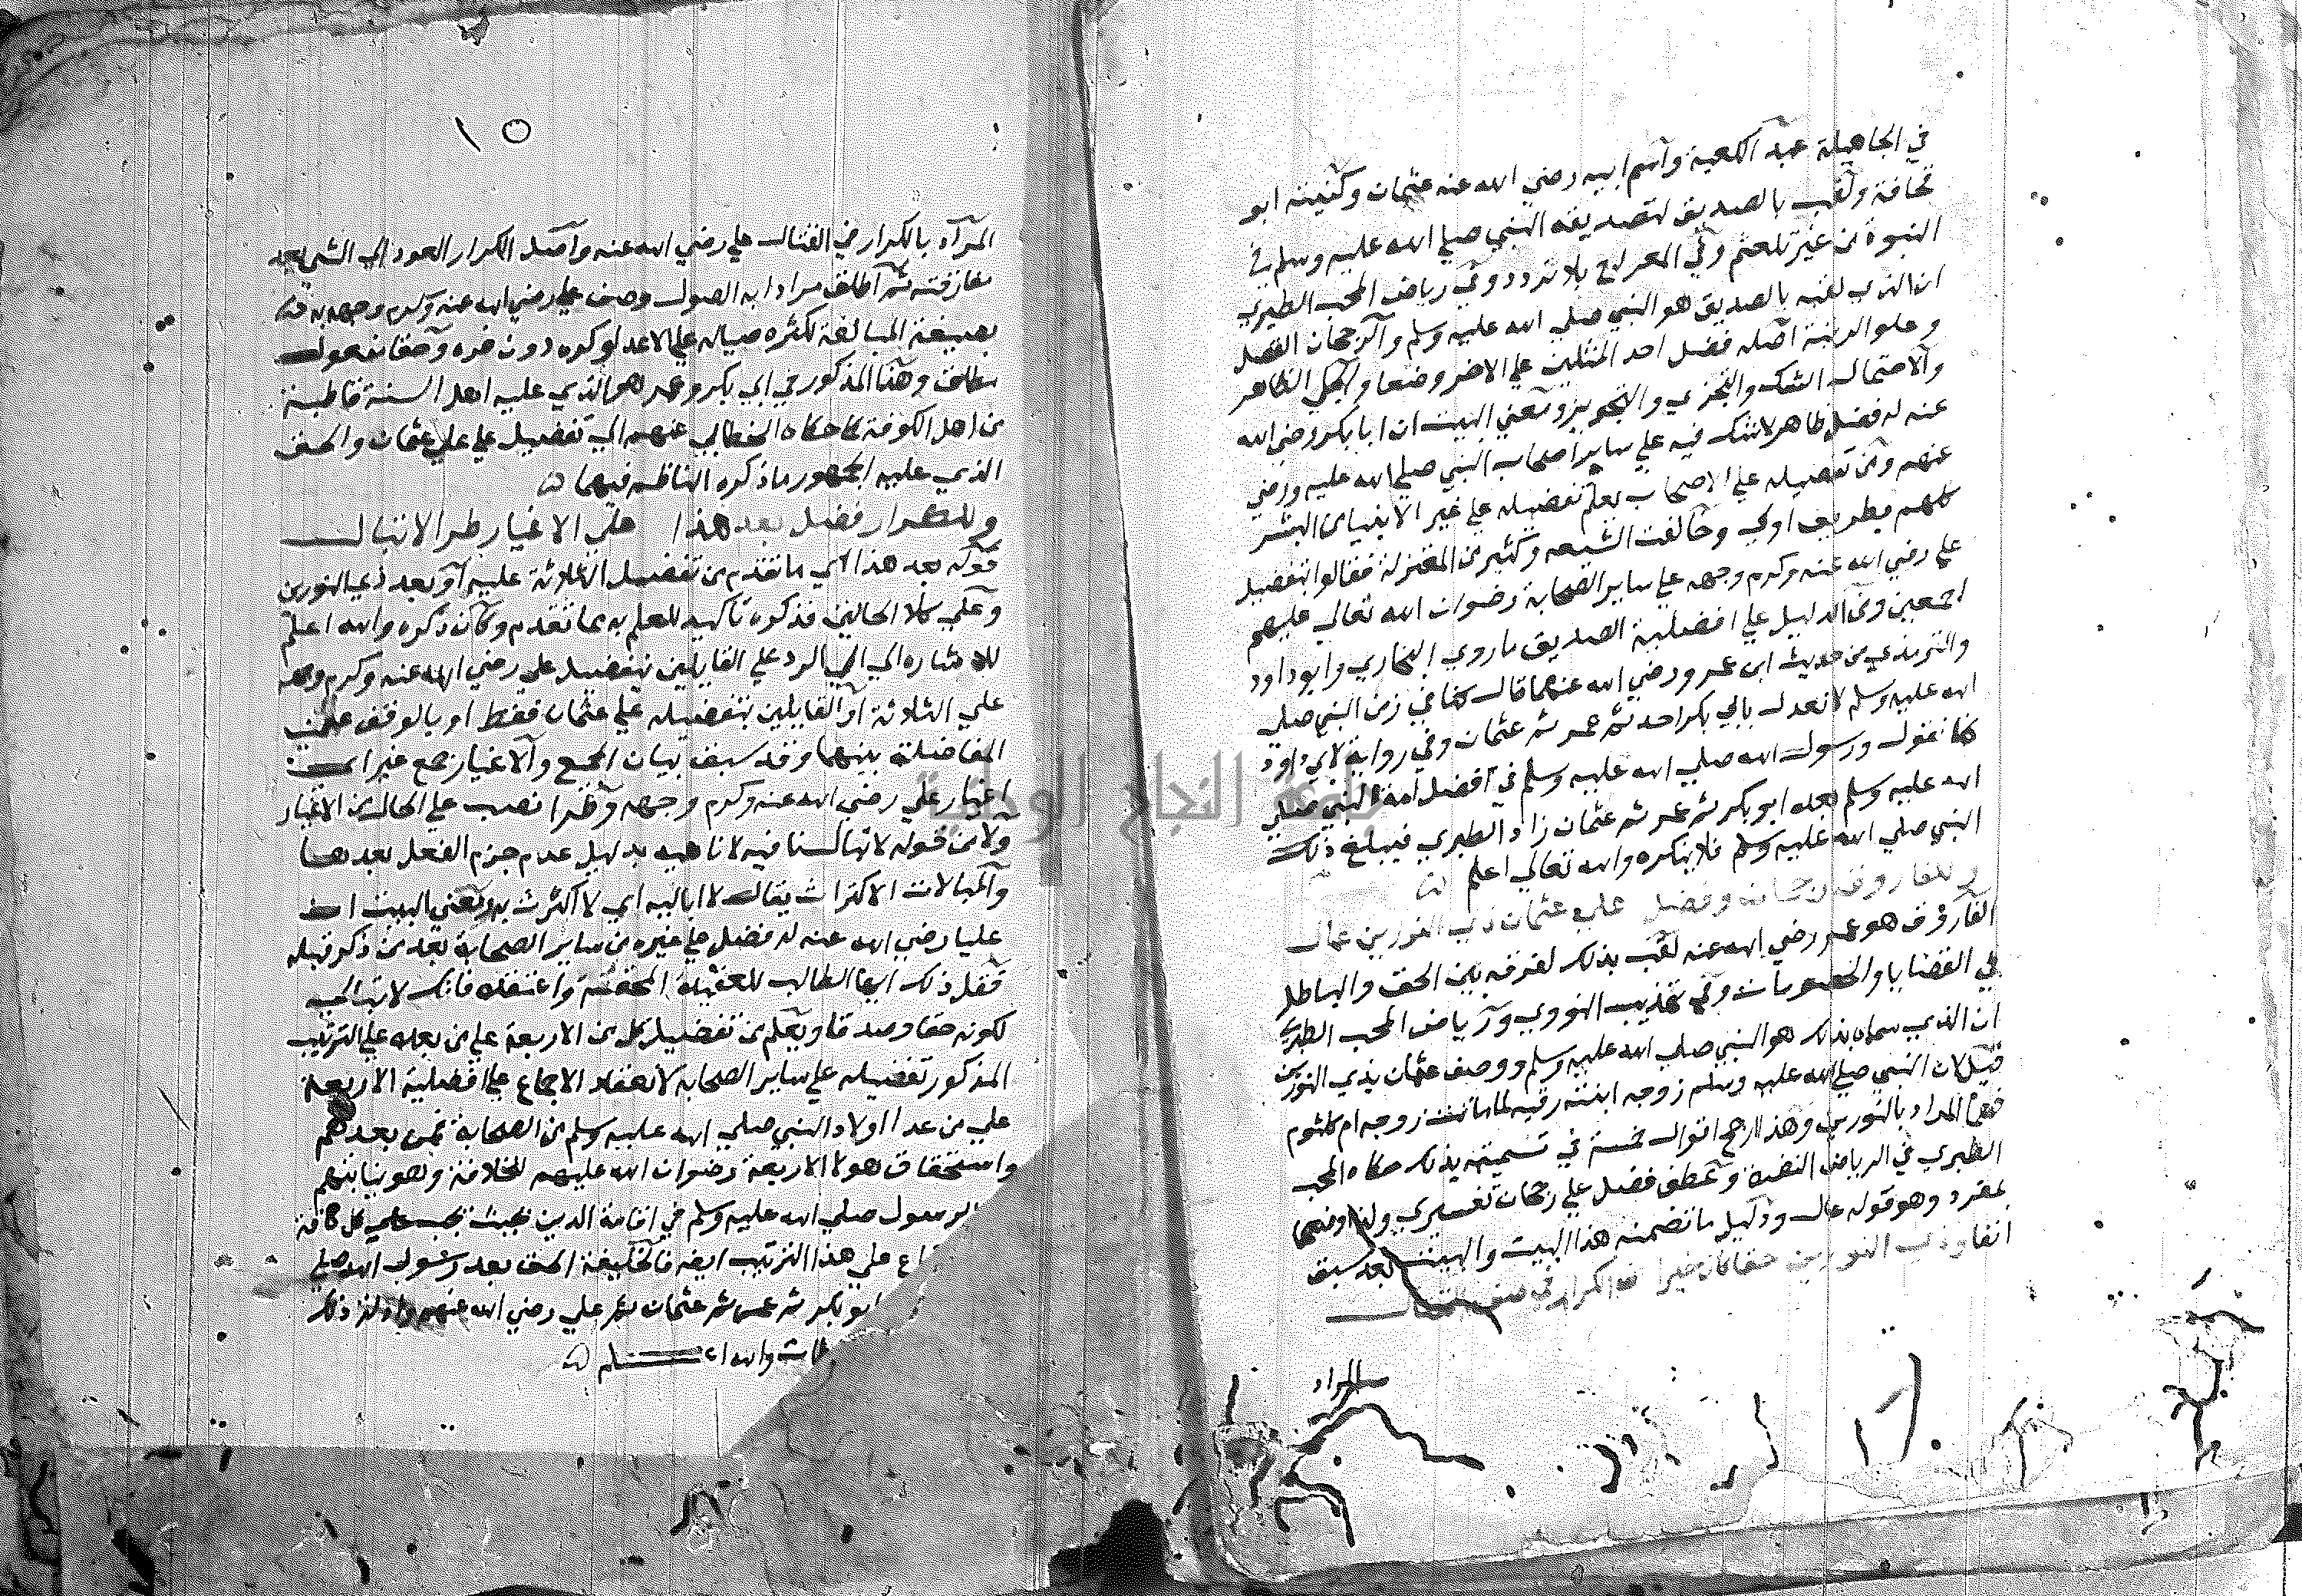 في الجاهيلة عبد الكعبة واسم ابيه رضي الله عنه عثمان وكنيته ابو
قحافة ولقب بالصديق لتصديقه النبي صلي الله عليه وسلم في
النبوة من غير تلعثم وفي المعراج بلا تردد وفي رياض المحب الطبري
ان الذي لقبه بالصديق هو النبي صلي الله عليه وسلم والرجحان الفضل
وعلو الرتبة اصله فضل احد المثلين علي الاخر وضعا والجلي الظاهر
والاحتمال الشك والتجزي والتجويز ومعني البيت ان ابا بكر رضي الله
عنه له فضل ظاهر لا شك فيه علي ساير اصحاب النبي صلي الله عليه ورضي
عنهم ومن تفضيله علي الاصحاب يعلم تفضيله علي غير الانبيا من البشر
كلهم بطريق اولي وخالفت الشيعه وكثير من المعتزلة فقالوا بتفضيل
علي رضي الله عنه وكرم وجهه علي ساير الصحابة رضوان الله تعالي عليهم
اجمعين ومن الدليل علي افضلية الصديق ما روي البخاري وابو داود
والترمذي من حديث ابن عمر ورضي الله عنهما قال كنا في زمن النبي صلي
الله عليه وسلم لا نعدل بابي بكر احد ثم عمر ثم عثمان وفي رواية لابي داود
كنا نقول ورسول الله صلي الله عليه وسلم في افضل امة النبي صلي
الله عليه وسلم بعده ابو بكر ثم عمر ثم عثمان زاد الطبري فيبلغ ذلك
النبي صلي الله عليه وسلم فلا ينكره والله تعالي اعلم
وللفاروق رجحان وفضل علي عثمان ذي النورين عال
الفاروق هو عمر رضي الله عنه لقب بذلك لفرقه بين الحق والباطل
في القضايا والخصومات وفي تهذيب النووي ورياض المحب الطبري
ان الذي سماه بذلك هو النبي صلي الله عليه وسلم ووصف عثمان بذي النورين
قيل لان النبي صلي الله عليه وسلم زوجه ابنته رقيه لما ماتت زوجه ام كلثوم
فهما المراد بالنورين وهذا ارجح اقوال خمسة في تسميته بذلك حكاه المحب
الطبري في الرياض النضرة وعطف فضل علي رجحان تفسيري ولذا وصفهما
بمفرد وهو قوله عال ودليل ما تضمنه هذا البيت والبيت بعد سبق
انفا وذي النورين حقا كان خيرا من الكرار في صف القتال
المراد
١٥
المراد بالكرار في القتال علي رضي الله عنه واصل الكرار العود الي الشي بعد
مفارقته ثم اطلق مرادا به الصول وصف علي رضي الله عنه وكرم وجهه به
بصيغة المبالغة لكثره صياله علي الاعداء وكره دون فره وحقا مفعول
مطلق وهذا المذكور في ابي بكر وعمر هو الذي عليه اهل السنة قاطبة
من اهل الكوفة كما حكاه الخطابي عنهم الي تفضيل علي علي عثمان والحق
الذي عليه الجمهور ما ذكره الناظم فيهما
وللكرار فضل بعد هذا علي الاغيار طرا لا تبال
قوله بعد هذا اي ما تقدم من تفضيل الثلاثة عليه او بعد ذي النورين
وعلي كلا الحالين فذكره تاكيد للعلم به مما تقدم وكان ذكره والله اعلم
للاشاره الي الرد علي القايلين بتفضيل علي رضي الله عنه وكرم وجهه
علي الثلاثة او القايلين بتفضيله علي عثمان فقط او بالوقف عن
المفاضلة بينهما وقد سبق بيان الجميع والاغيار جمع غير اي
اغيار علي رضي الله عنه وكرم وجهه وطرا نصب علي الحال من الاغيار
ولا من قوله لا تبال لنا فيه لا ناهيه بدليل عدم جزم الفعل بعدها
والمبالات الاكتراث يقال لا اباليه اي لا اكترث به ومعني البيت ان
عليا رضي الله عنه له فضل علي غيره من ساير الصحابة بعد من ذكر قبله
فقل ذلك ايها الطالب للعقيدة المحققة واعتقده فانك لا تبالي به
لكونه حقا وصدقا ويعلم من تفضيل كل من الاربعة علي من بعده علي الترتيب
المذكور تفضيله علي ساير الصحابه لانعقاد الاجماع علي افضلية الاربعة
علي من عدا اولاد النبي صلي الله عليه وسلم من الصحابة فمن بعدهم
واستحقاق هولا الاربعة رضوان الله عليهم للخلافة وهو نيابتهم
الرسول صلي الله عليه وسلم في اقامة الدين بحيث يجب علي كل كافة
اع علي هذا الترتيب ايضا فالخليفة الحق بعد رسول الله صلي
ابو بكر ثم عمر ثم عثمان ثم علي رضي الله عنهم
والله اعلم
جامعة النجاح الوطنية